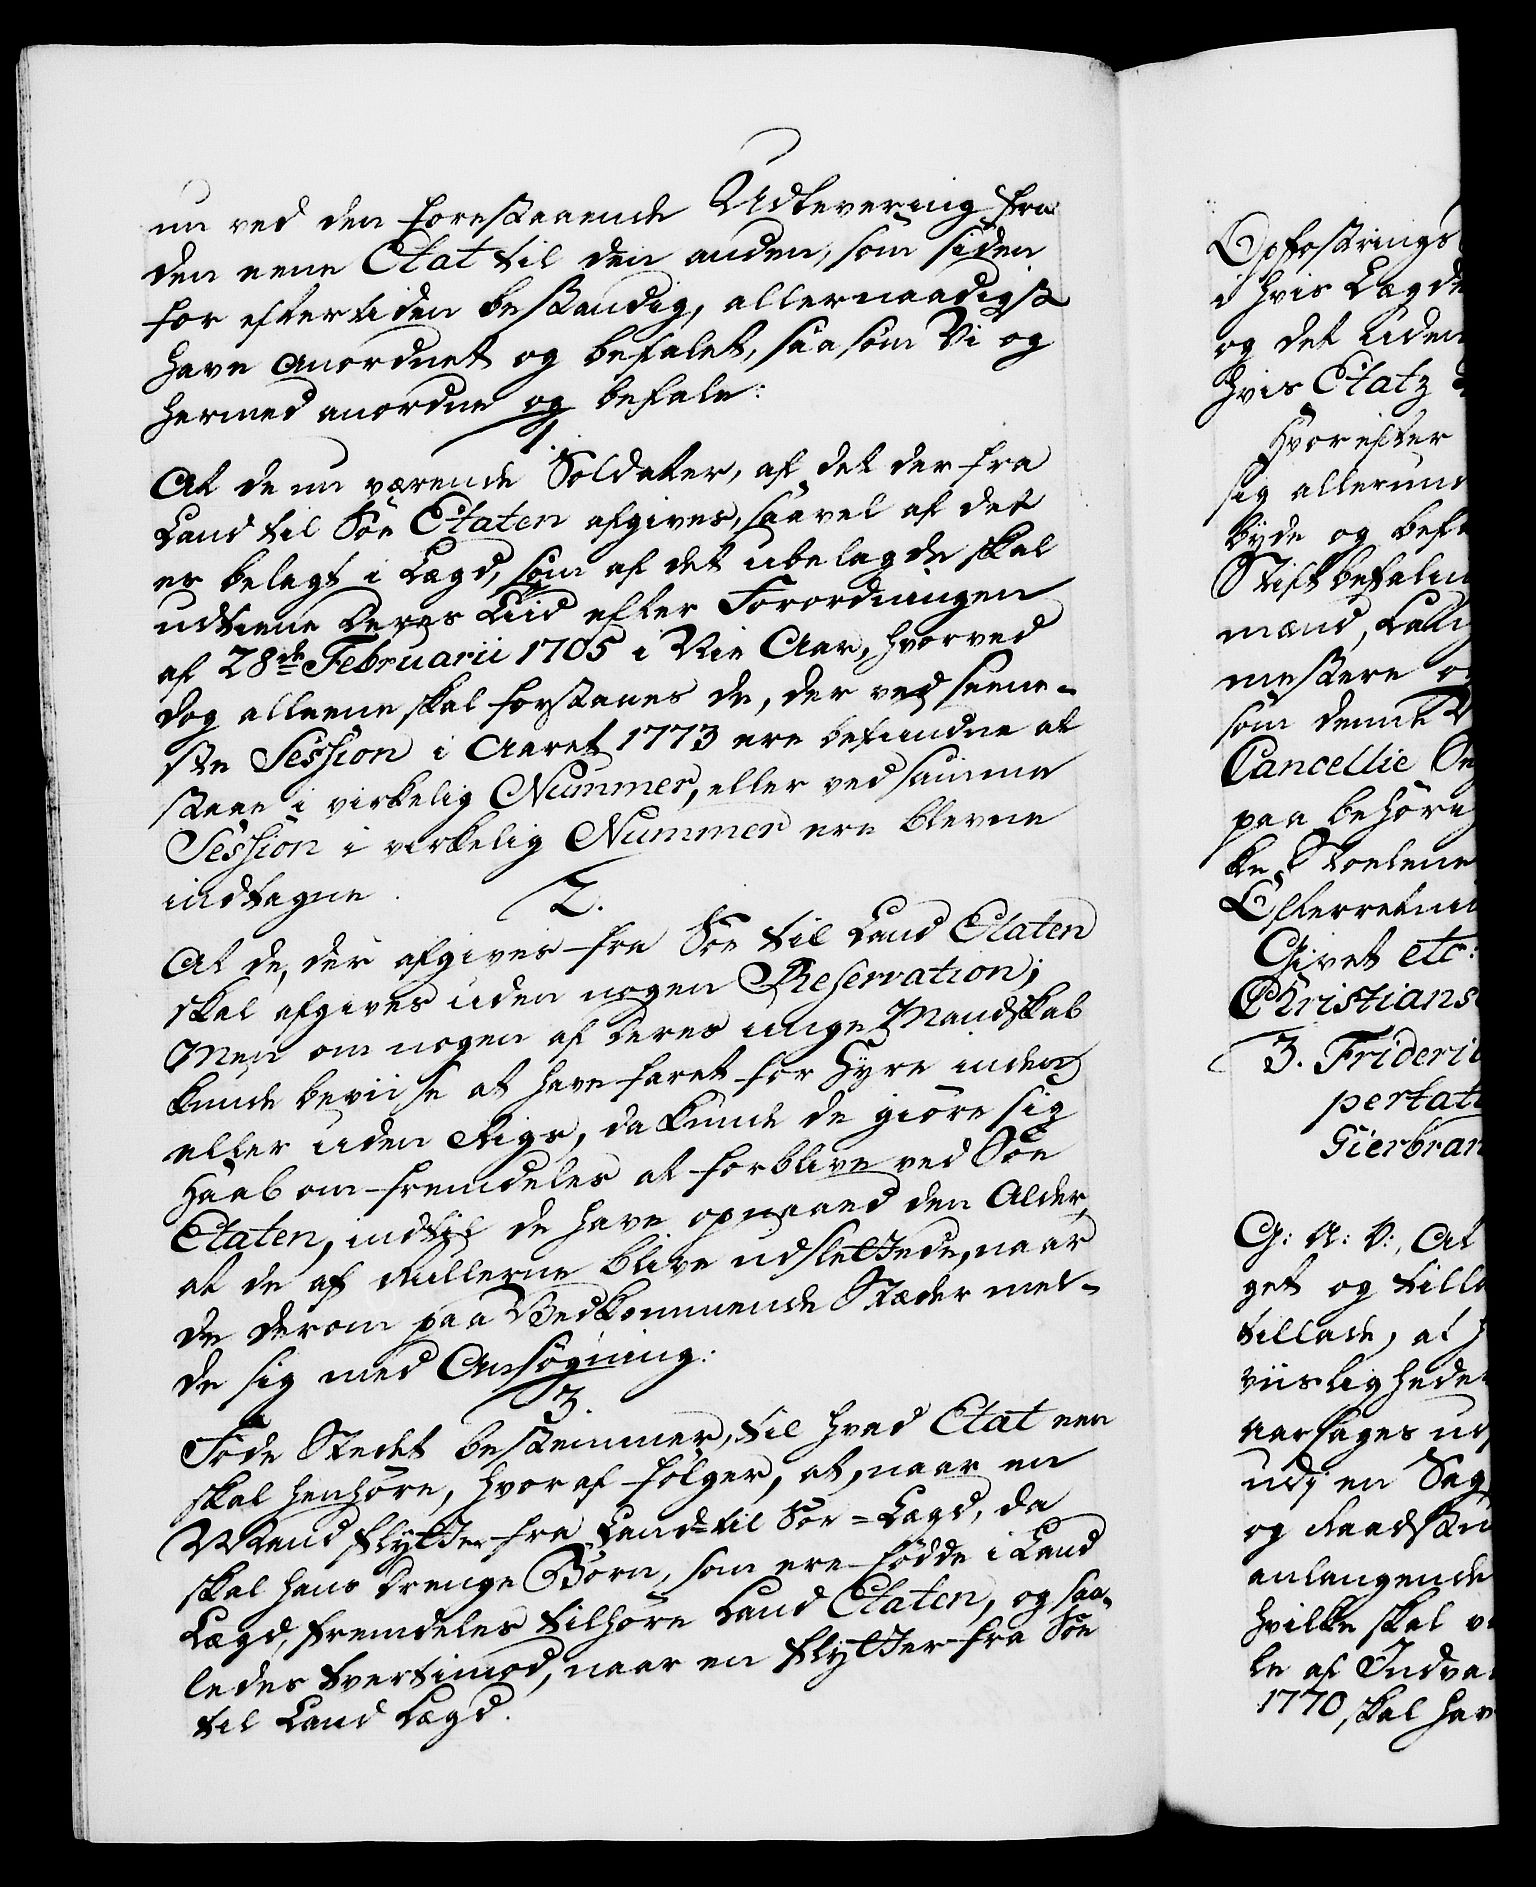 nu ved den forestaaende Udlevering fra
den eene Etat til den anden, som siden
for eftertiden bestandig, allernaadigst
have anordnet og befalet, saasom Vi og
hermed anordne og befale:
1.
At de nu værende Soldater, af det der fra
Land til Søe Etaten afgives, saavel af det
er belagt i Lægd, som af det ubelagde skal
udtiene deres Tiid efter Forordningen
af 28de Februarii 1705 i Nie Aar, hvorved
dog alleene skal forstaaes de, der ved seene-
ste Session i Aaret 1773 ere befundne at
staae i virkelig Nummer, eller ved samme
Session i verkelig Nummer ere blevne
indtagne.
2.
At de, der afgives fra Søe til Land Etaten
skal afgives uden nogen Reservation;
Men om nogen af deres unge Mandskab
kunde beviise at have faret for Hyre inden
eller uden Rigs, da kunde de giøre sig
Haab om fremdeles at forblive ved Søe
Etaten, indtil de have opnaaed den Alder,
at de af Rullerne blive udslettede, naar
de derom paa Vedkommende Stæder mel-
de sig med Ansøgning:
3.
Føde Stedet bestemmer, til hvad Etat een
skal henhøre, hvoraf følger, at, naar en
Mand flytter fra Land- til Søe-Lægd, da
skal hans Drenge Børn, som ere fødde i Land
Lægd, fremdeles tilhøre Land Etaten, og saa-
ledes tvertimod, naar en flytter fra Søe
til Land Lægd.
Opfostrings
i hvis Lægde
og det uden
hvis Etatz
Hvorefter
sig allerund
byde og befa
Stiftbefalin
mænd, Land
mestere o
som denne
Cancellie
paa behørig
ke Stolene
Efterretni
Givet etc:
Christians
3. Frideri
pertat
Gierbran
G: A: V:, At
get og tilla
tillade, at
viisligheder
aarsages ud
udj en Sag
og Raadstu
anlangende
hvilke skal v
le af Indva
1770, skal hav